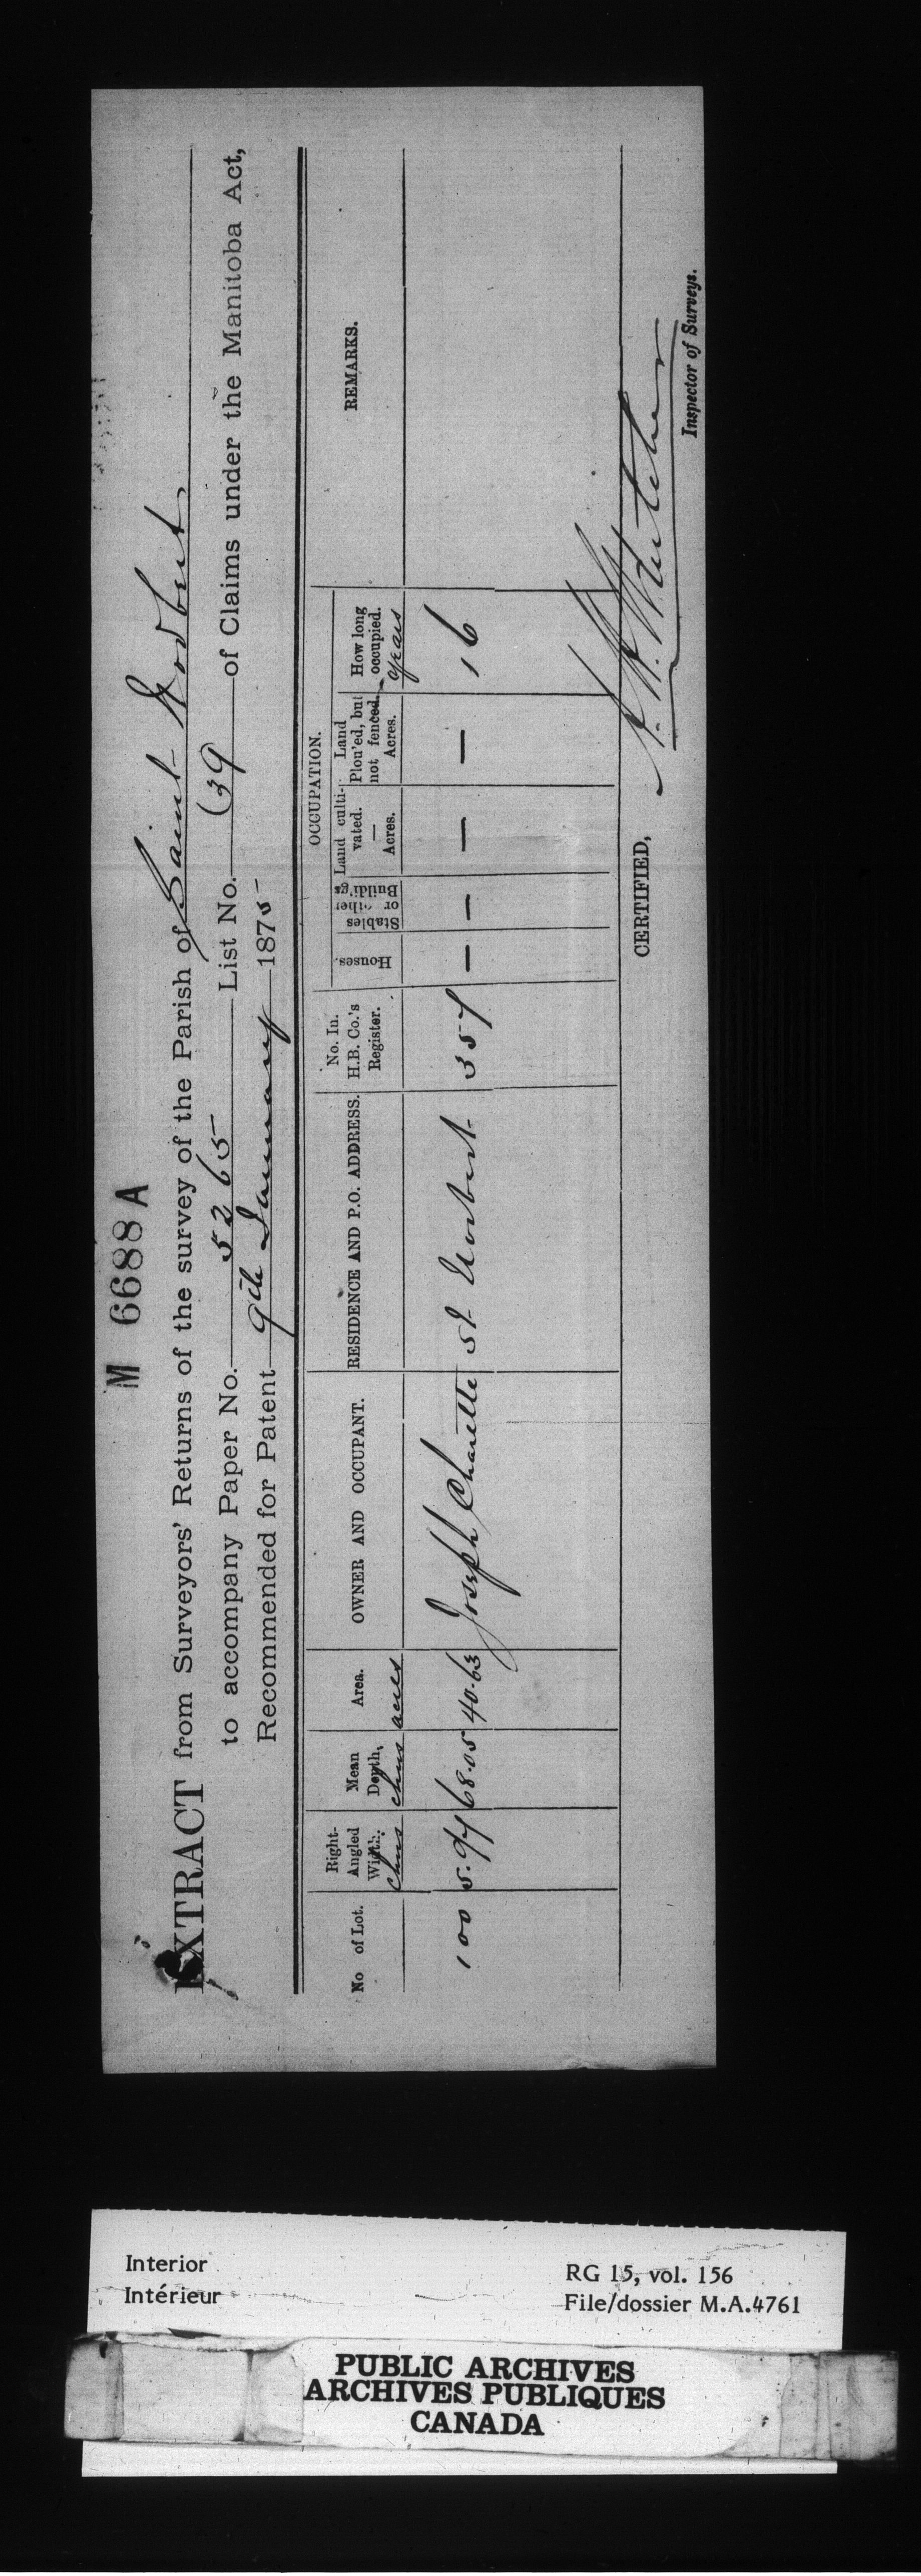 M 6688 A
EXTRACT from Surveyors' Returns of the survey of the Parish of Saint Norbert
to accompany Paper No. 5265 List No. 139 of Claims under the Manitoba Act,
Recommended for Patent 9th January 1875
No of Lot.
Right-Angled Width. chns
Mean Depth. chns
Area. acres
OWNER AND OCCUPANT.
RESIDENCE AND P.O. ADDRESS.
No. In. H.B. Co.'s Register.
OCCUPATION.
Houses.
Stables or other Buildi'gs
Land culti-vated. — Acres.
Land Plou'ed, but not fenced. Acres.
How long occupied. years
REMARKS.
100 5.97 68.05 40.63 Joseph Charette St Norbert 357 — — — — 16
CERTIFIED,
A. H. Whitcher
Inspector of Surveys.
Interior
Intérieur
RG 15, vol. 156
File/dossier M.A.4761
PUBLIC ARCHIVES
ARCHIVES PUBLIQUES
CANADA